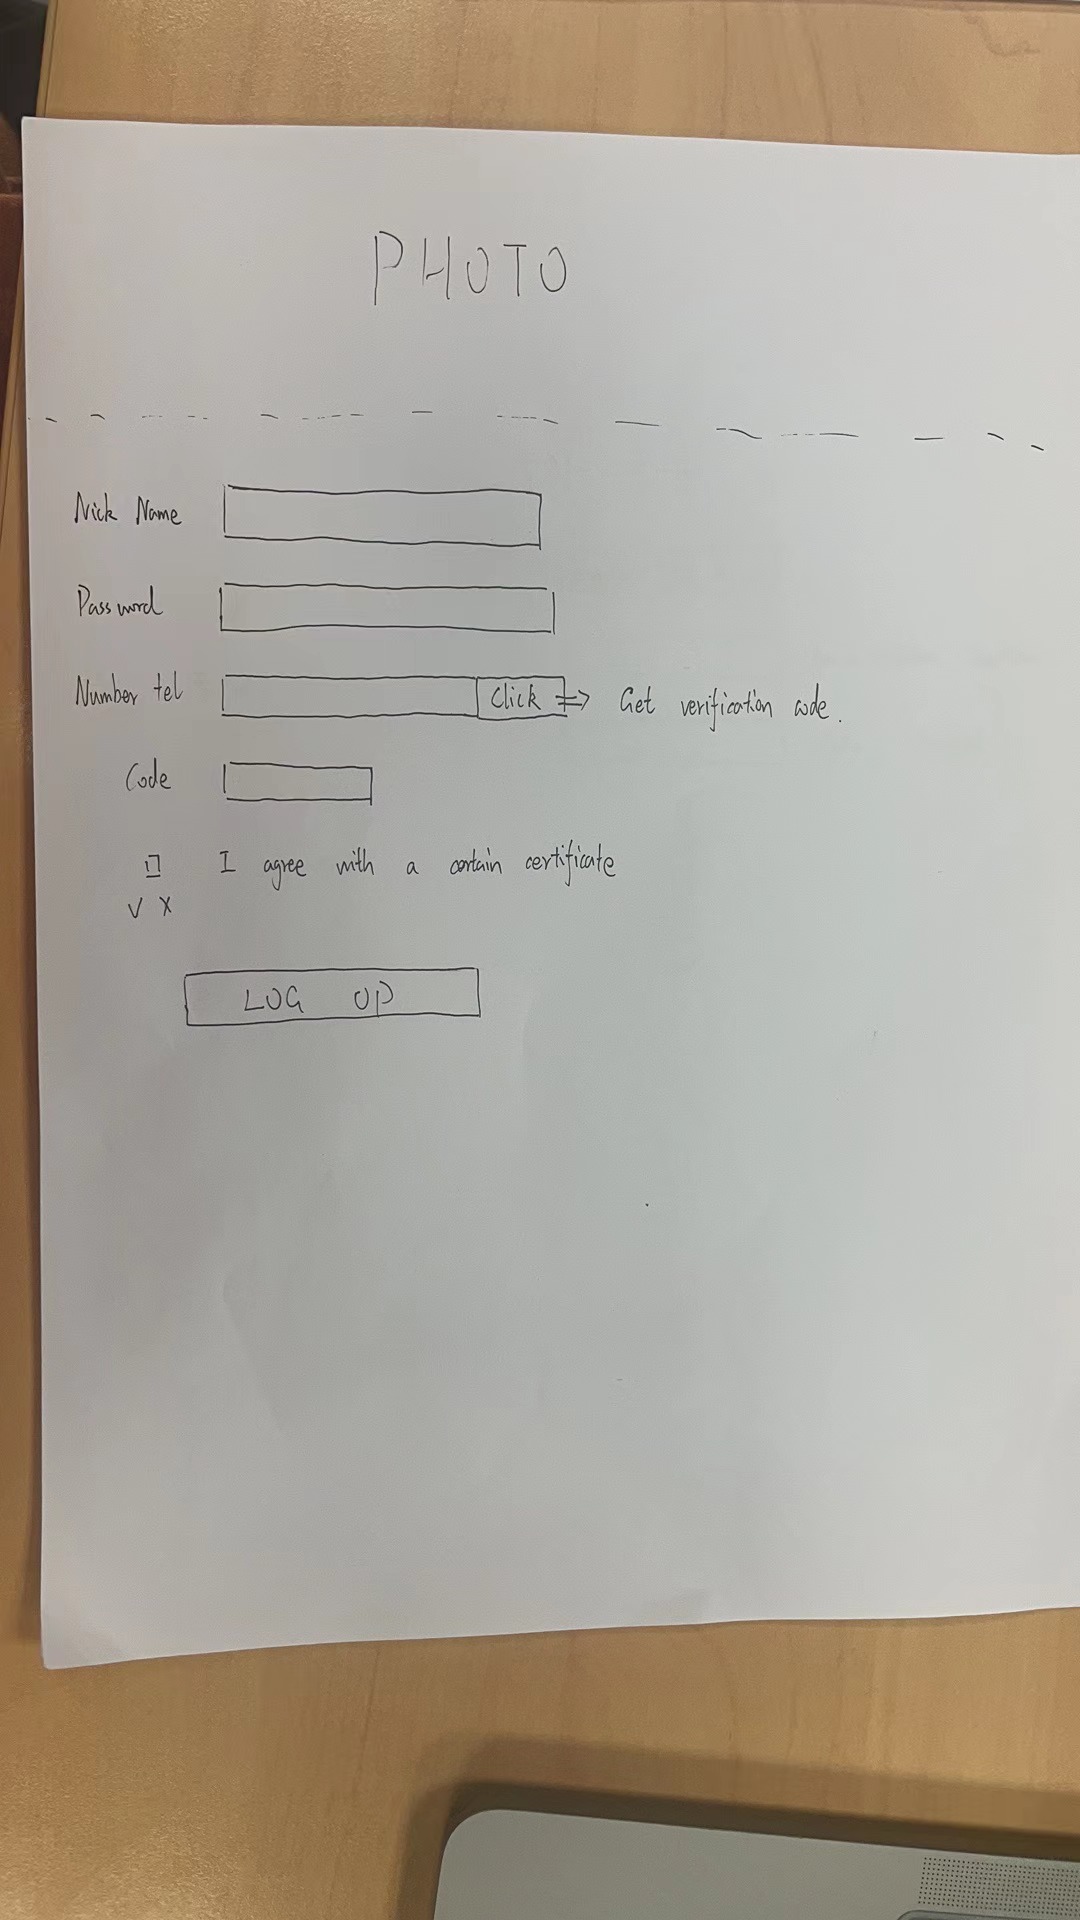 PHOTO
Nick Name
Password
Number tel Click => Get verification code.
Code
I agree with a certain certificate
V X
LOG UP